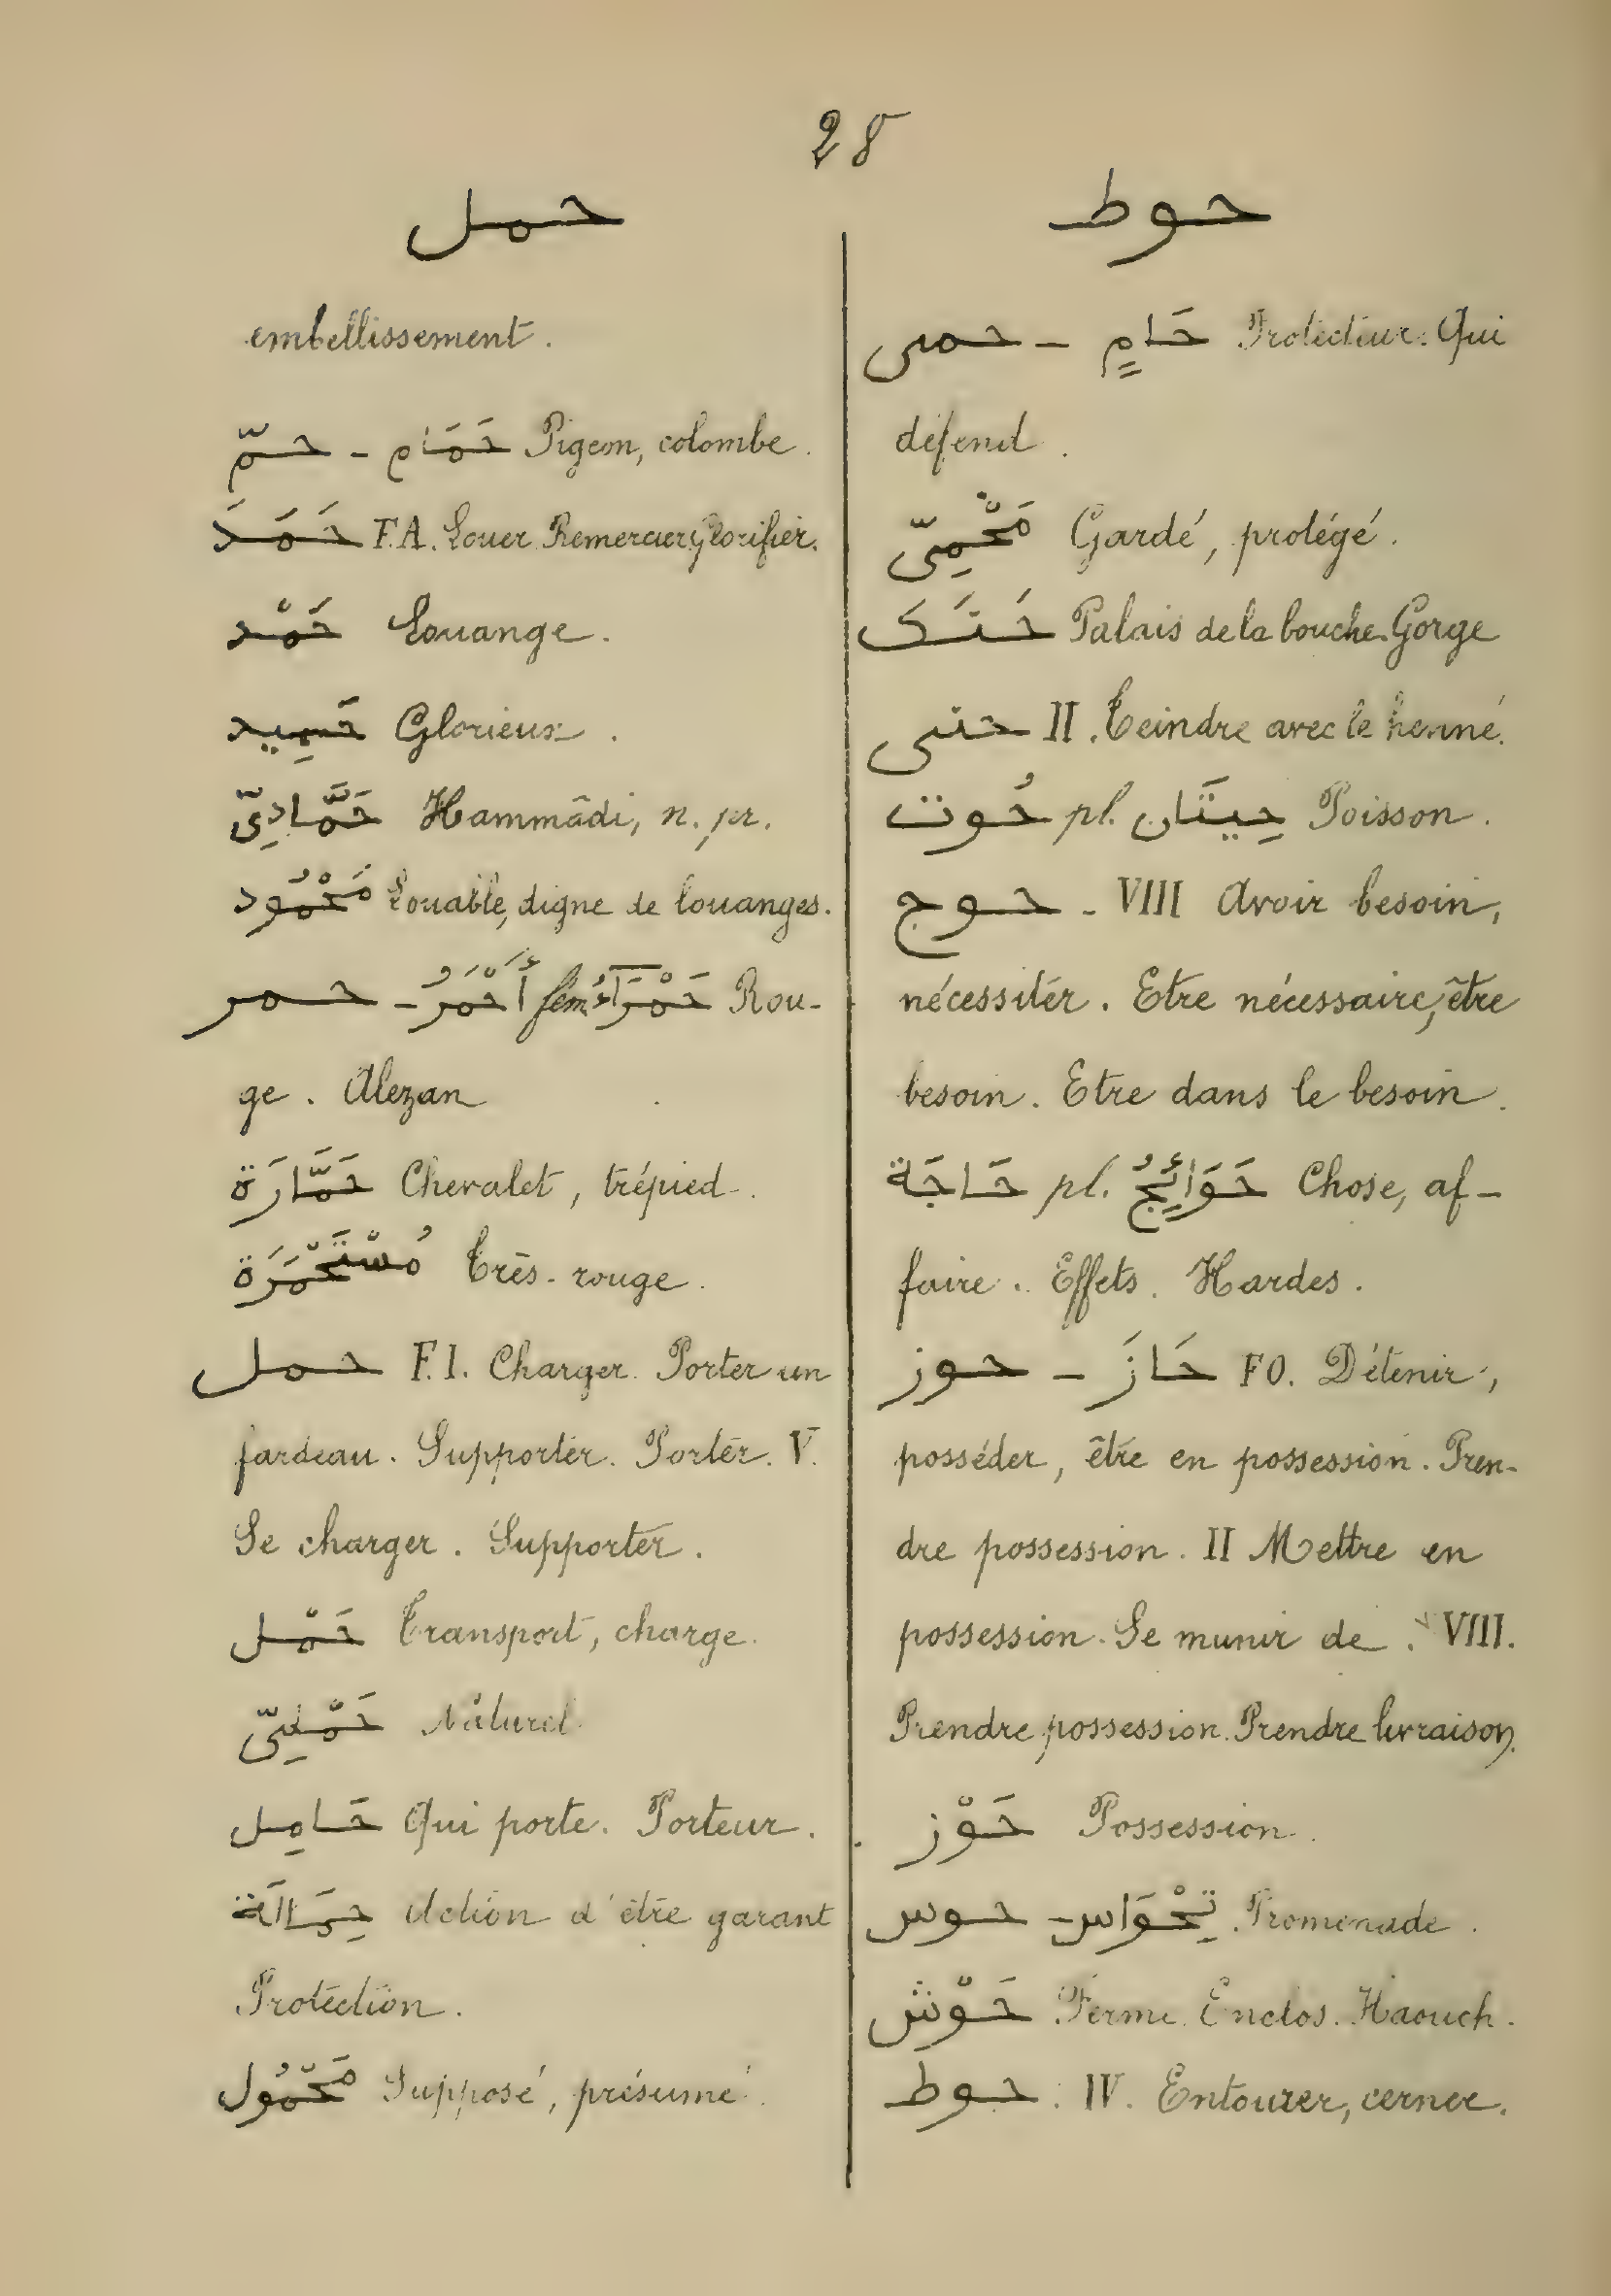 28
حمل
embellissement.
حمّ - حَمَام Pigeon, colombe.
حَمَدَ F.A. Louer. Remercier. Glorifier.
حَمْد Louange.
حَمِيد Glorieux.
حَمَّادِىّ Hammâdi, n. pr.
مَحْمُود Louable, digne de louanges.
حمر - أَحْمَرُ fém. حَمْرَآءُ Rou-
ge. Alezan
حَمَّارَة Chevalet, trépied.
مُسْتَحْمَرَة Très-rouge.
حمل F.I. Charger. Porter un
fardeau. Supporter. Porter. V.
Se charger. Supporter.
حَمْل Transport, charge.
حَمْلِىّ Naturel.
حَامِل Qui porte. Porteur.
حِمَالَة Action d'être garant
Protection.
مَحْمُول Supposé, présumé.
حوط
حمى - حَامٍ Protecteur. Qui
défend.
مَحْمِىّ Gardé, protégé.
حَنَك Palais de la bouche. Gorge
حنى II. Teindre avec le henné.
حُوت pl. حِيتَان Poisson.
حوج - VIII Avoir besoin,
nécessiter. Etre nécessaire, être
besoin. Etre dans le besoin.
حَاجَة pl. حَوَائِجُ Chose, af-
faire. Effets. Hardes.
حوز - حَازَ FO. Détenir,
posséder, être en possession. Pren-
dre possession. II Mettre en
possession. Se munir de. VIII.
Prendre possession. Prendre livraison.
حَوْز Possession.
حوس - تِحْوَاس. Promenade.
حَوْش Ferme. Enclos. Haouch.
حوط. IV. Entourer, cerner.